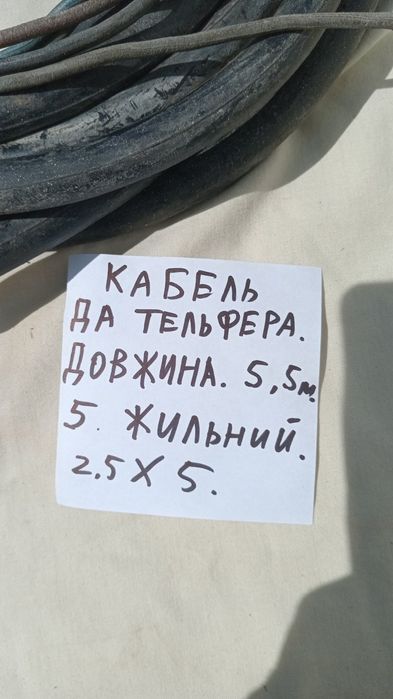 КАБЕЛЬ
ДА ТЕЛЬФЕРА.
ДОВЖИНА. 5,5м.
5. ЖИЛЬНИЙ.
2.5 X 5.